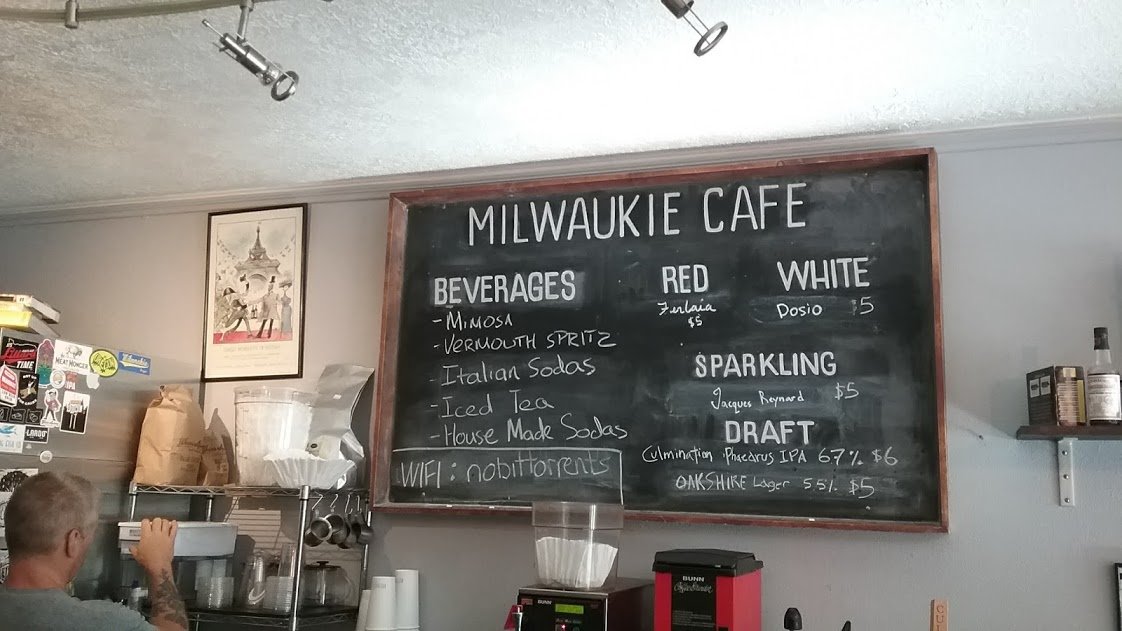 MILWAUKIE CAFE
BEVERAGES
- MIMOSA
- VERMOUTH SPRITZ
- Italian Sodas
- Iced Tea
- House Made Sodas
WIFI: nobittorrents
RED
$5
WHITE
Dosio $5
SPARKLING
Jacques Reynard $5
DRAFT
Culmination Phaedrus IPA 67% $6
OAKSHIRE Lager 5.5% $5
TIME
MEAT MONGER
IPA
LARDO
BUNN
BUNN